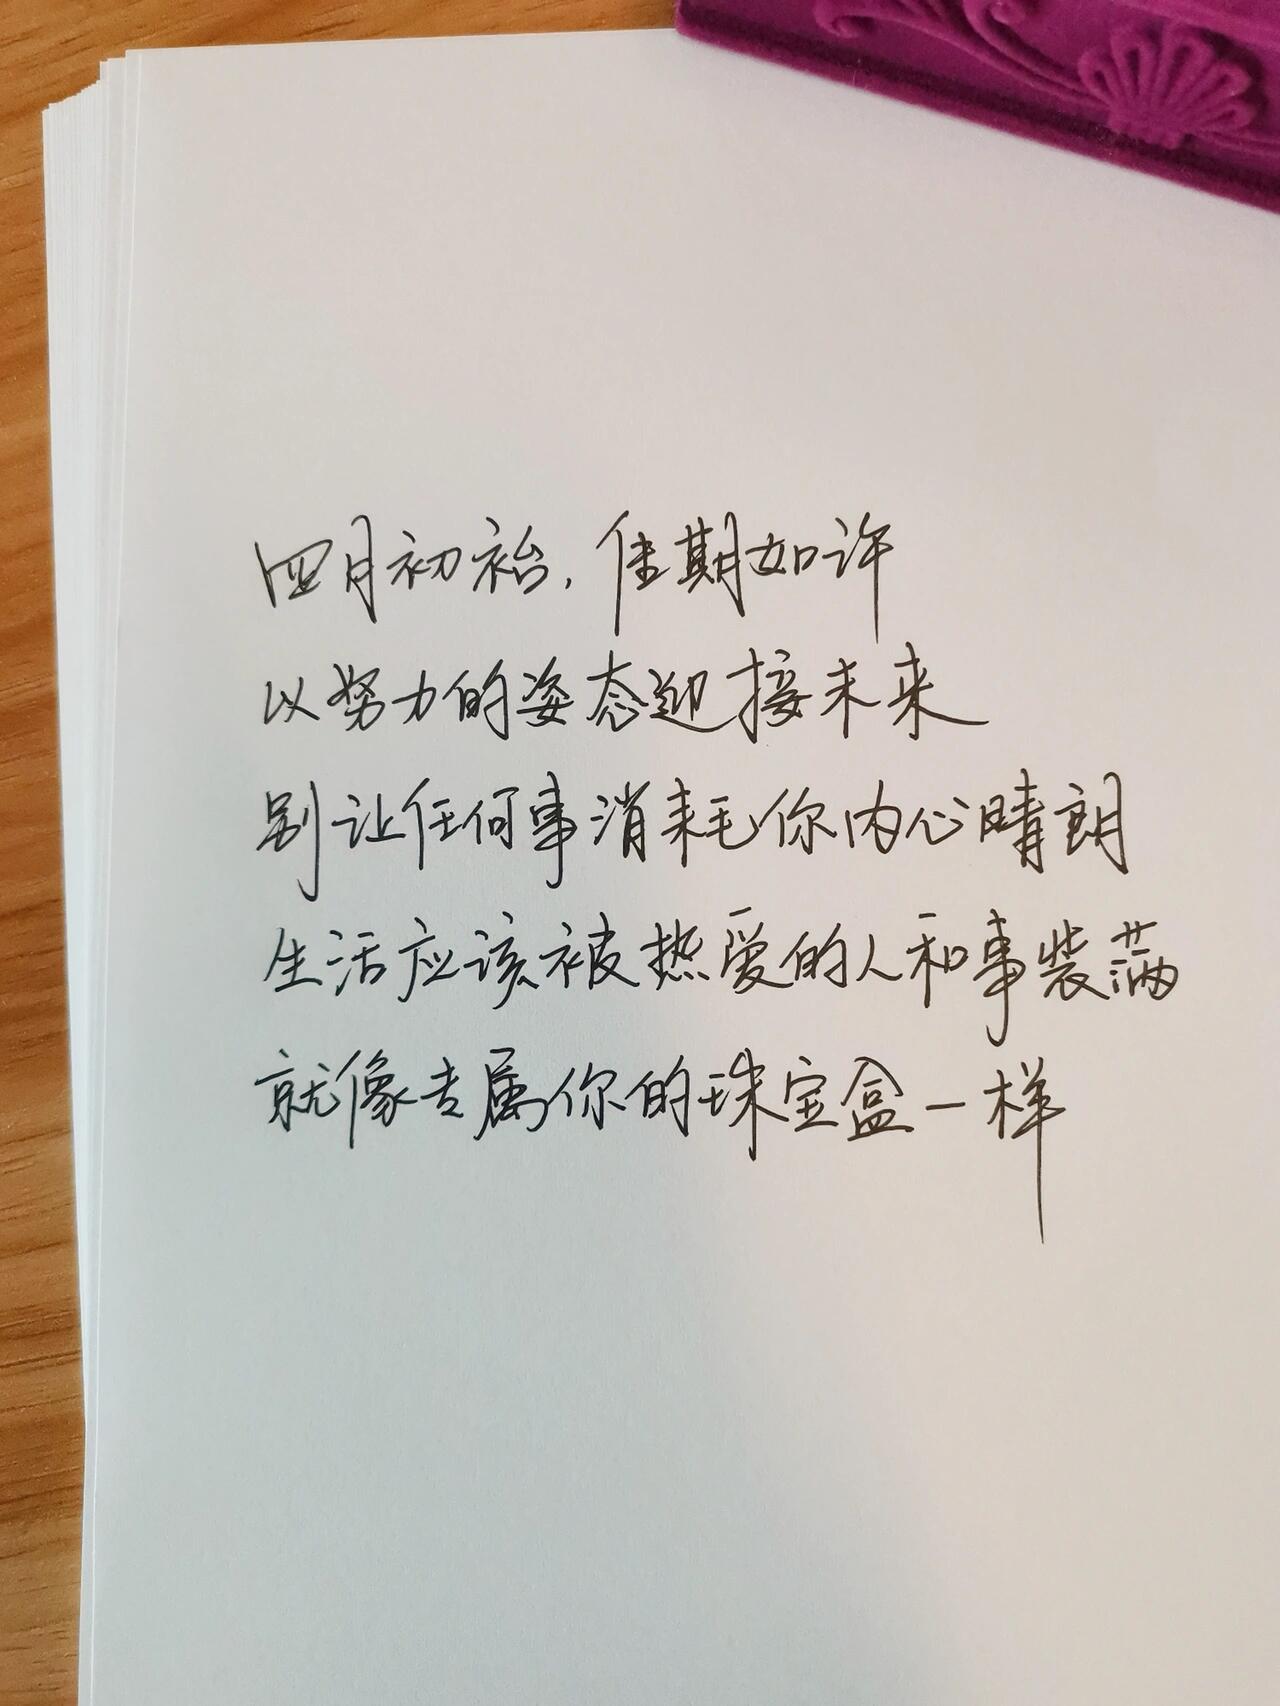 四月初始，佳期如许
以努力的姿态迎接未来
别让任何事消耗你内心晴朗
生活应该被热爱的人和事装满
就像专属你的珠宝盒一样